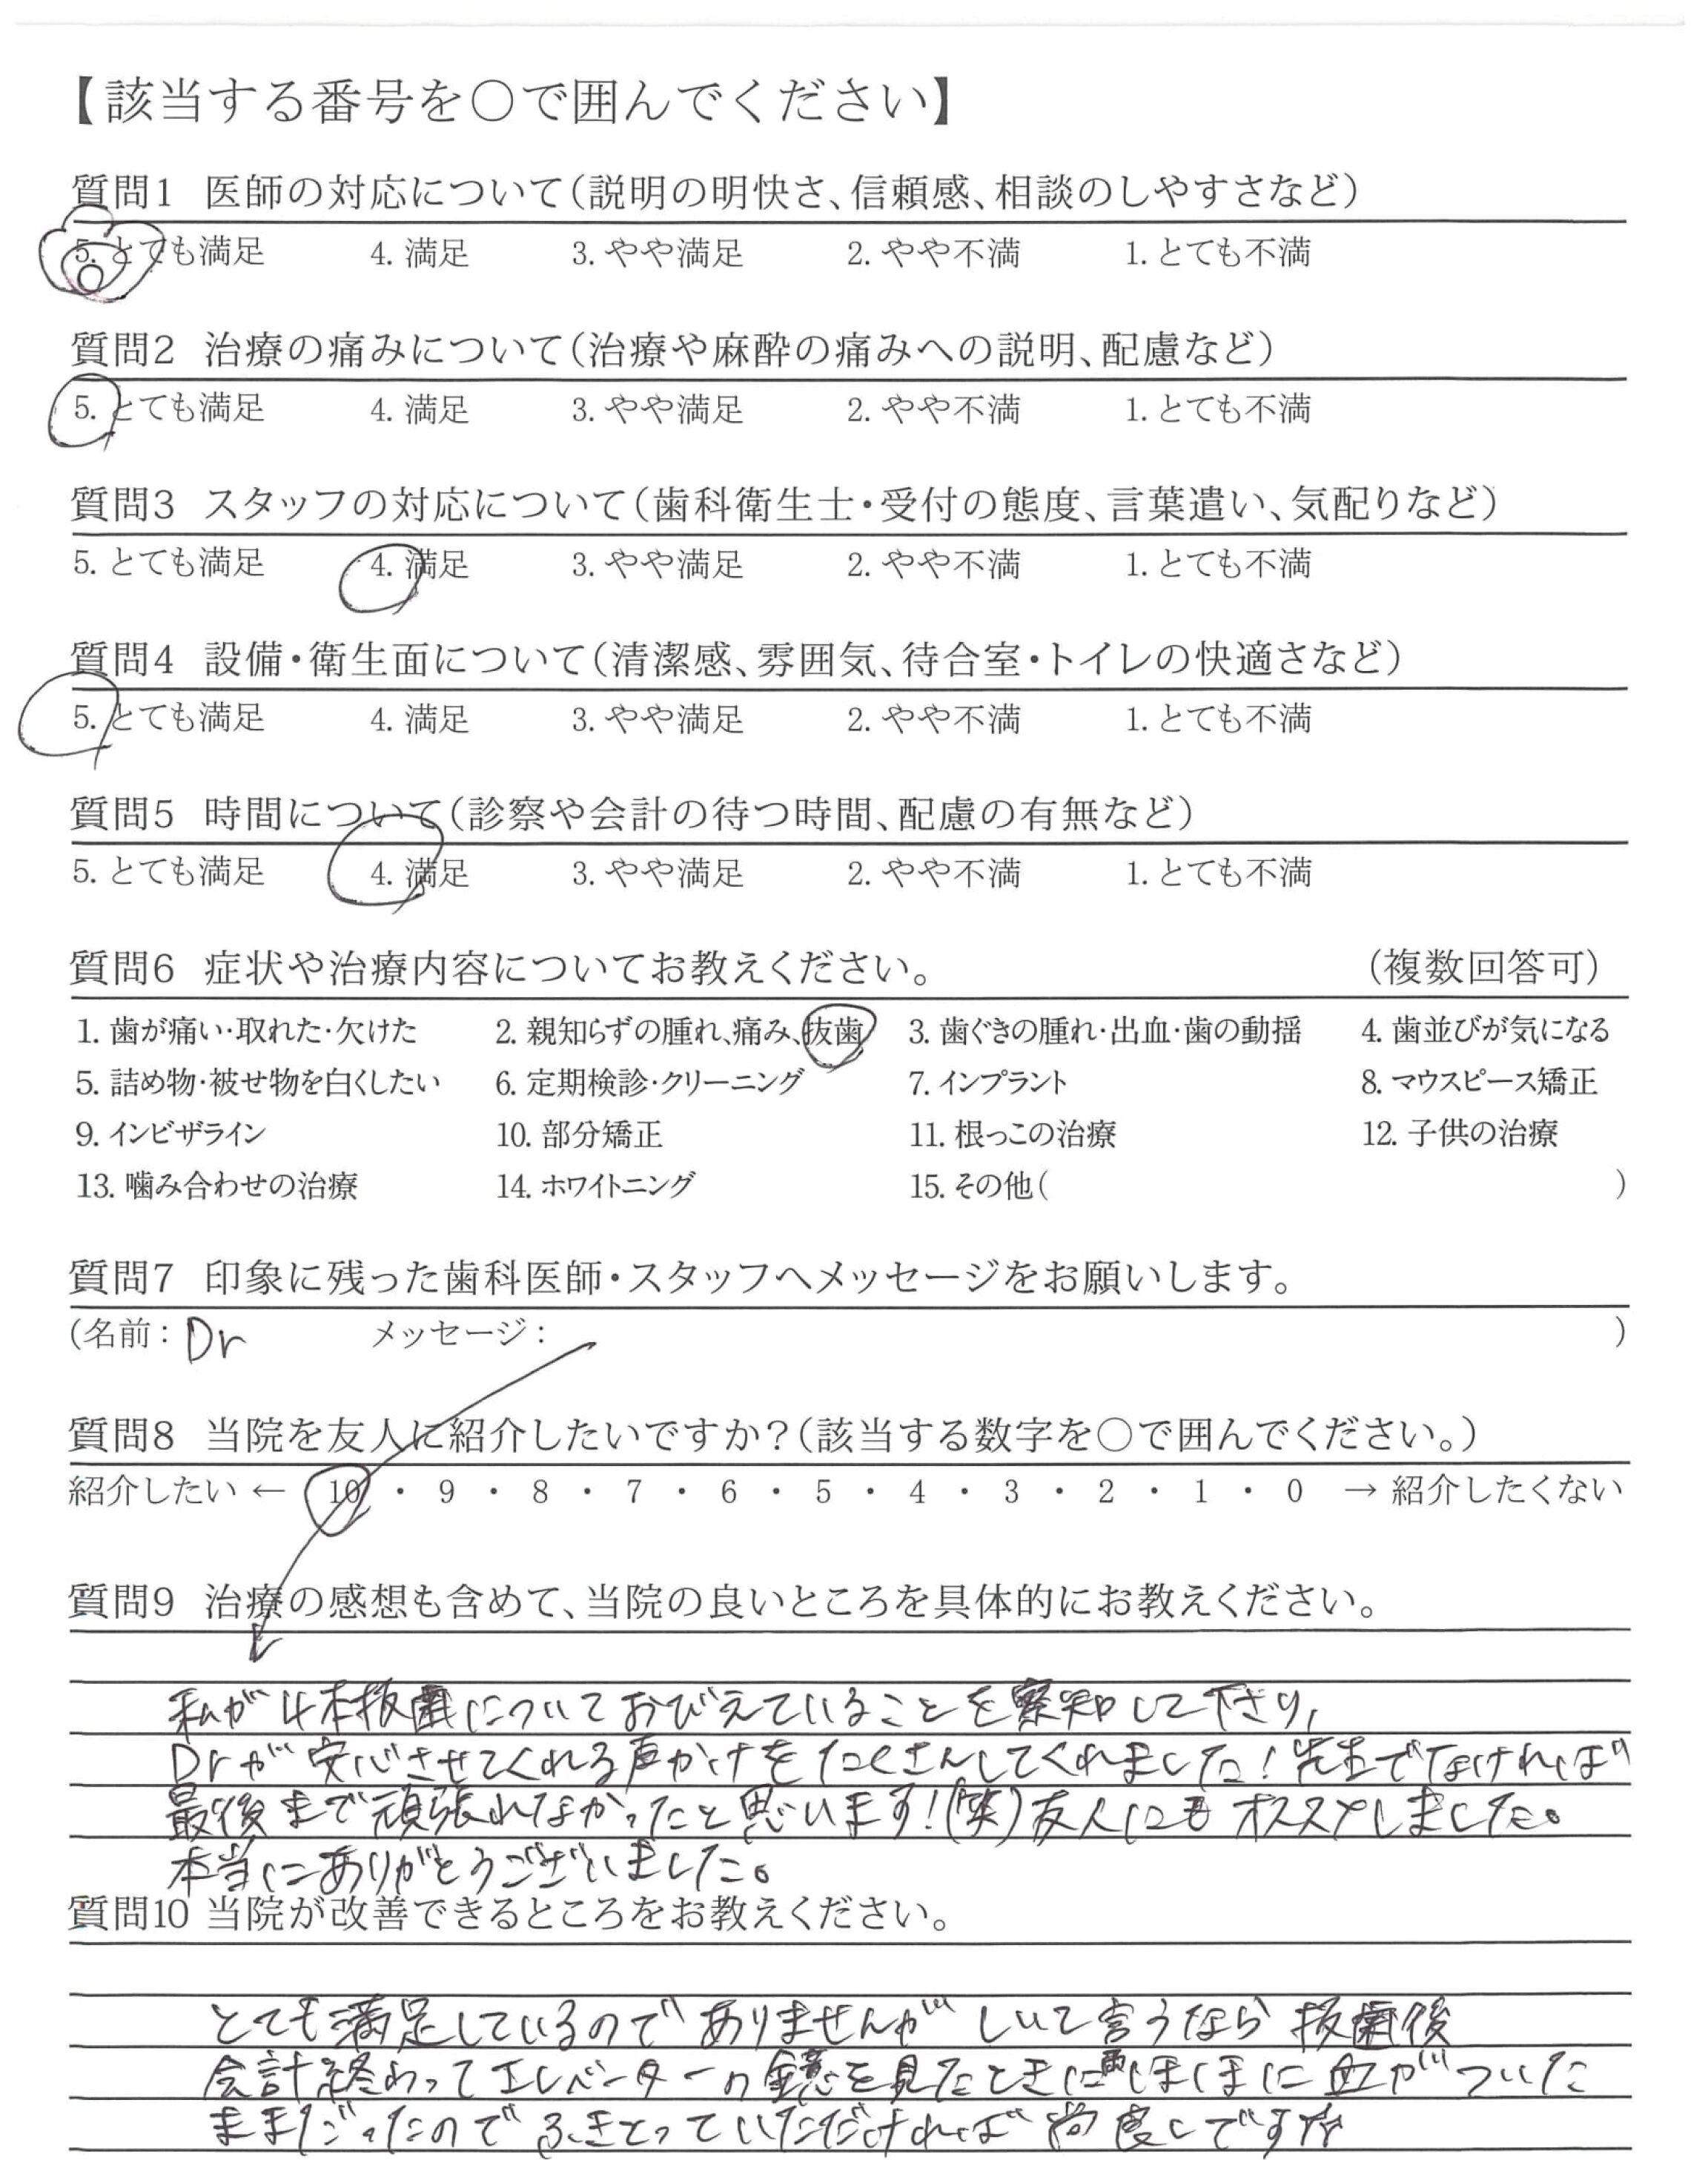 【該当する番号を○で囲んでください】
質問1 医師の対応について(説明の明快さ、信頼感、相談のしやすさなど)
5. とても満足 4. 満足 3. やや満足 2. やや不満 1. とても不満
質問2 治療の痛みについて(治療や麻酔の痛みへの説明、配慮など)
5. とても満足 4. 満足 3. やや満足 2. やや不満 1. とても不満
質問3 スタッフの対応について(歯科衛生士・受付の態度、言葉遣い、気配りなど)
5. とても満足 4. 満足 3. やや満足 2. やや不満 1. とても不満
質問4 設備・衛生面について(清潔感、雰囲気、待合室・トイレの快適さなど)
5. とても満足 4. 満足 3. やや満足 2. やや不満 1. とても不満
質問5 時間について(診察や会計の待つ時間、配慮の有無など)
5. とても満足 4. 満足 3. やや満足 2. やや不満 1. とても不満
質問6 症状や治療内容についてお教えください。 (複数回答可)
1. 歯が痛い・取れた・欠けた 2. 親知らずの腫れ、痛み、抜歯 3. 歯ぐきの腫れ・出血・歯の動揺 4. 歯並びが気になる
5. 詰め物・被せ物を白くしたい 6. 定期検診・クリーニング 7. インプラント 8. マウスピース矯正
9. インビザライン 10. 部分矯正 11. 根っこの治療 12. 子供の治療
13. 噛み合わせの治療 14. ホワイトニング 15. その他( )
質問7 印象に残った歯科医師・スタッフへメッセージをお願いします。
(名前: Dr メッセージ: )
質問8 当院を友人に紹介したいですか?(該当する数字を○で囲んでください。)
紹介したい ← 10 ・ 9 ・ 8 ・ 7 ・ 6 ・ 5 ・ 4 ・ 3 ・ 2 ・ 1 ・ 0 → 紹介したくない
質問9 治療の感想も含めて、当院の良いところを具体的にお教えください。
私が4本抜歯についておびえていることを察知して下さり、
Drが安心させてくれる声かけをたくさんしてくれました!先生でなければ
最後まで頑張れなかったと思います!(笑)友人にもオススメしました。
本当にありがとうございました。
質問10 当院が改善できるところをお教えください。
とても満足しているのでありませんがしいて言うなら抜歯後
会計終わってエレベーターの鏡を見たときにほほに血がついた
ままだったのでふきとっていただければ尚良しですな